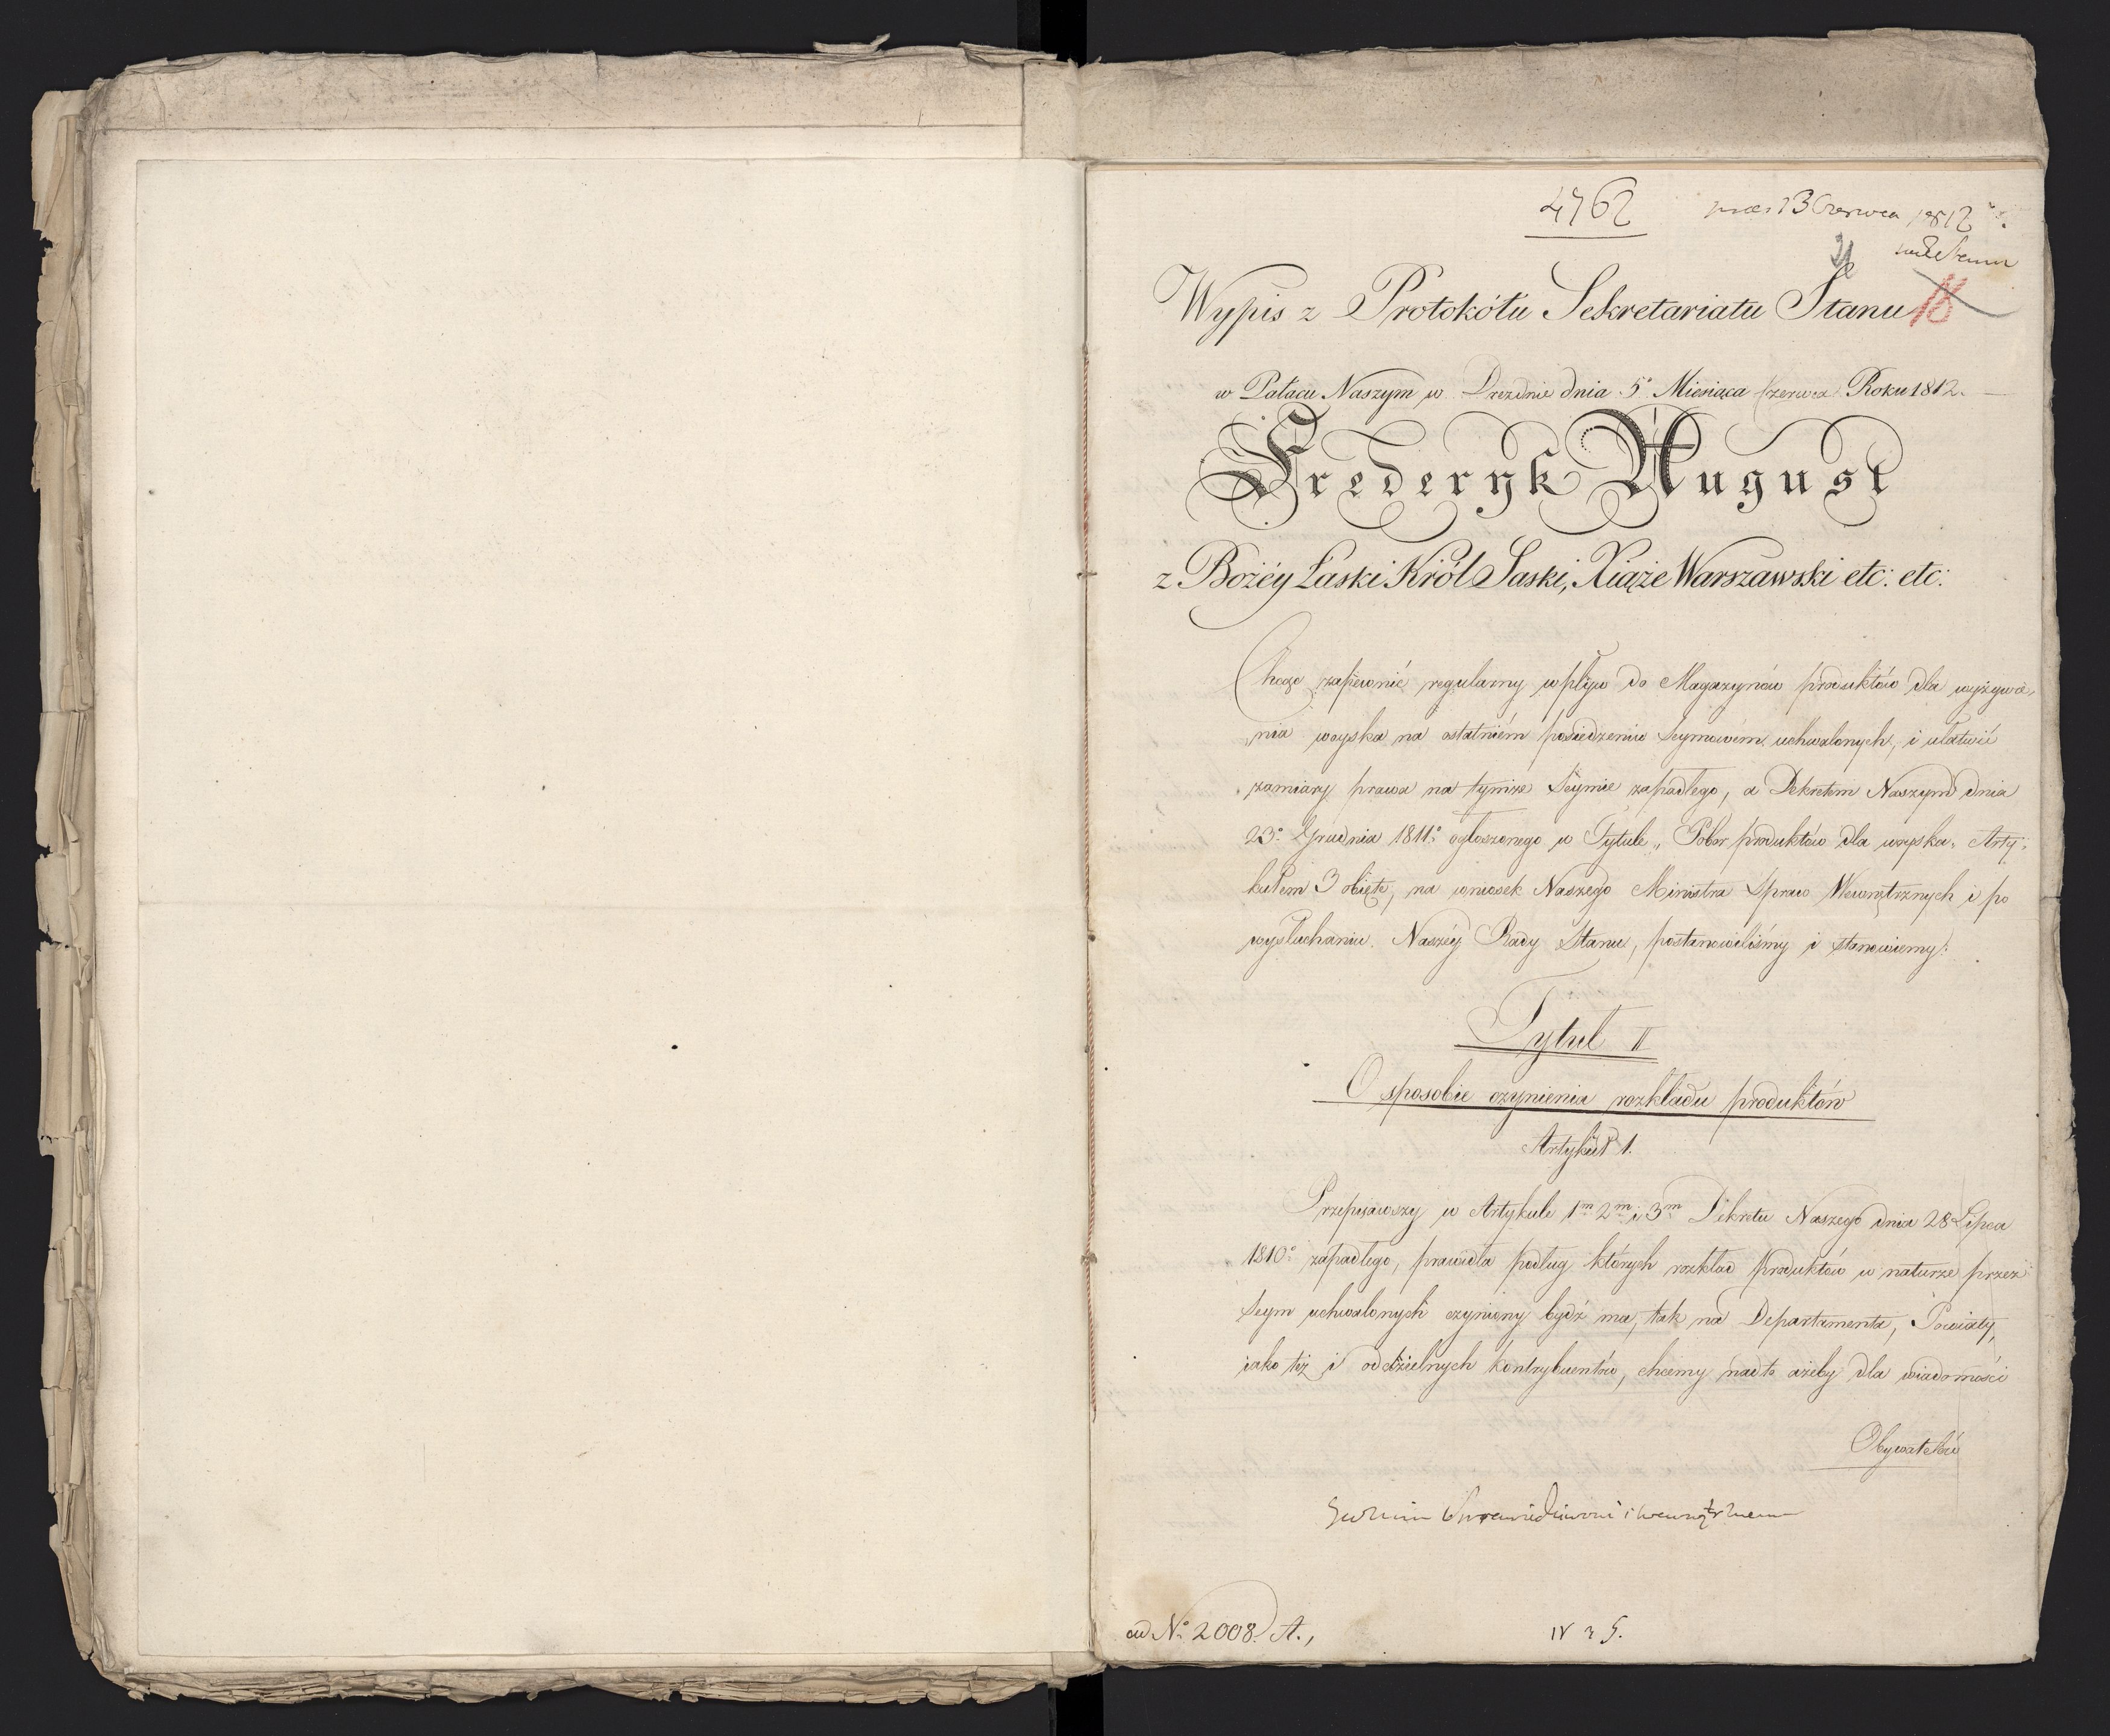 4762
praes 13 Czerwca 1812
21
18
Wypis z Protokółu Sekretariatu Stanu
w Pałacu Naszym w Dreznie dnia 5° Miesiąca Czerwca Roku 1812.
Frederyk August
z Bożéy Łaski Król Saski, Xiąże Warszawski etc: etc:
Chcąc zapewnić regularny wpływ do Magazynów produktów dla wyżywie-
„nia woyska na ostatniém posiedzeniu Seymowém uchwalonych, i ułatwić
zamiary prawa na tymże Seymie zapadłego, a Dekretem Naszym dnia
23° Grudnia 1811° ogłoszonego w Tytule „ Pobor produktów dla woyska „ Arty-
kułem 3 obięte, na wniosek Naszego Ministra Spraw Wewnętrznych i po
wysłuchaniu Naszéy Rady Stanu, postanowiliśmy i stanowiemy:
Tytuł II
O sposobie czynienia rozkładu produktów
Artykuł 1.
Przepisawszy w Artykule 1m 2m i 3m Dekretu Naszego dnia 28 Lipca
1810° zapadłego, prawidła podług których rozkład produktów w naturze przez
Seym uchwalonych czyniony bydź ma, tak na Departamenta, Powiaty,
iako też i oddzielnych kontrybuentów, chcemy nadto ażeby dla wiadomości
Obywatelów
Sprawiedliwości i wewnętrznem
ad N° 2008. A.,